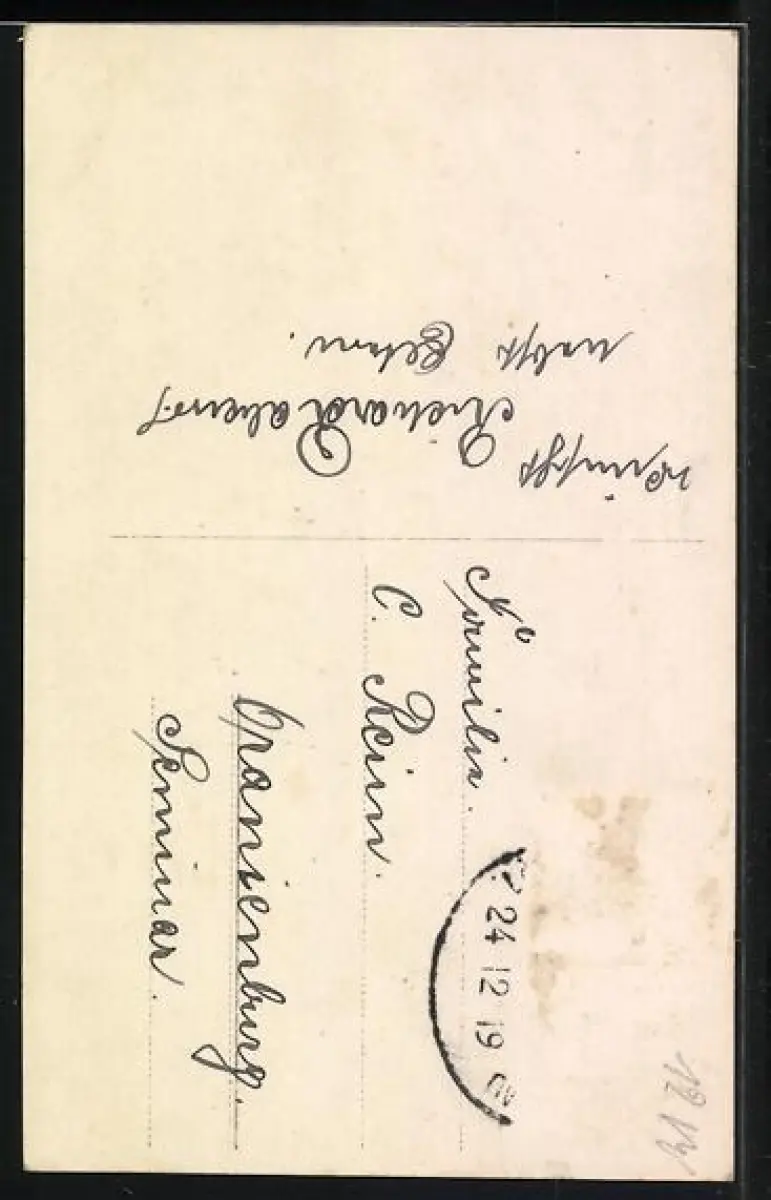 wünscht
Richard
nebst Eltern.
Familie
C. Rein.
Oranienburg.
Seminar.
24 12 19